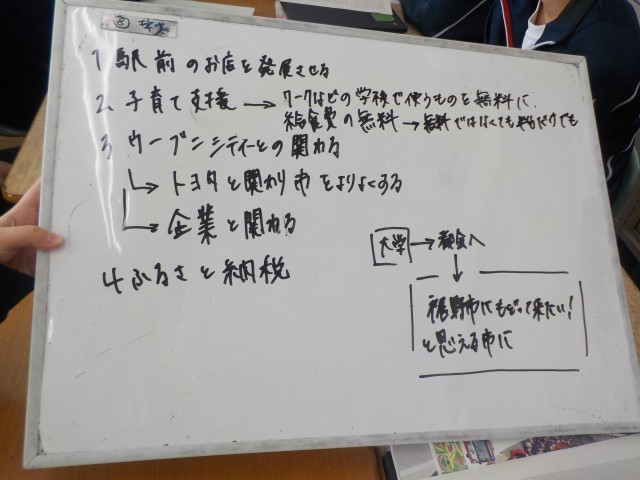 1 駅前のお店を発展させる
2. 子育て支援 → ワークなどの学校で使うものを無料に
給食費の無料 → 無料ではなくても だけでも
3 ウーブンシティーとの関わる
↳ トヨタと関わり市をよりよくする
↳ 企業と関わる
4 ふるさと納税
大学 → 都会へ
↓
裾野市にもどって来たい!
と思える市に